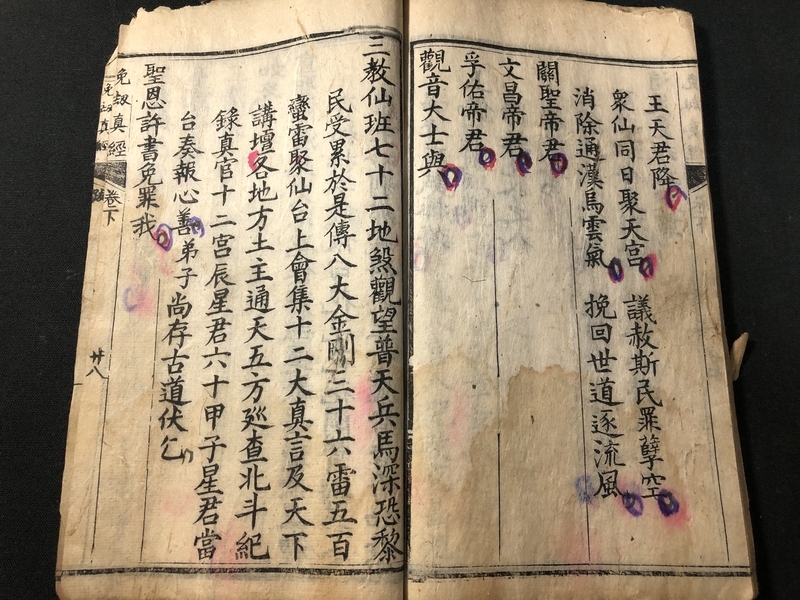 王天君降
衆仙同日聚天宮　議赦斯民罪孽空
消除通漢烏雲氣　挽回世道逐流風
關聖帝君
文昌帝君
孚佑帝君
觀音大士與
三教仙班七十二地煞觀望普天兵馬深恐黎
民受累於是傳八大金剛三十六雷五百
蠻雷聚仙台上會集十二大真言及天下
講壇各地方土主通天五方廵查北斗紀
錄真官十二宮辰星君六十甲子星君當
台奏報心善弟子尚存古道伏乞
聖恩許書免罪我
免劫真經
卷下
廿八